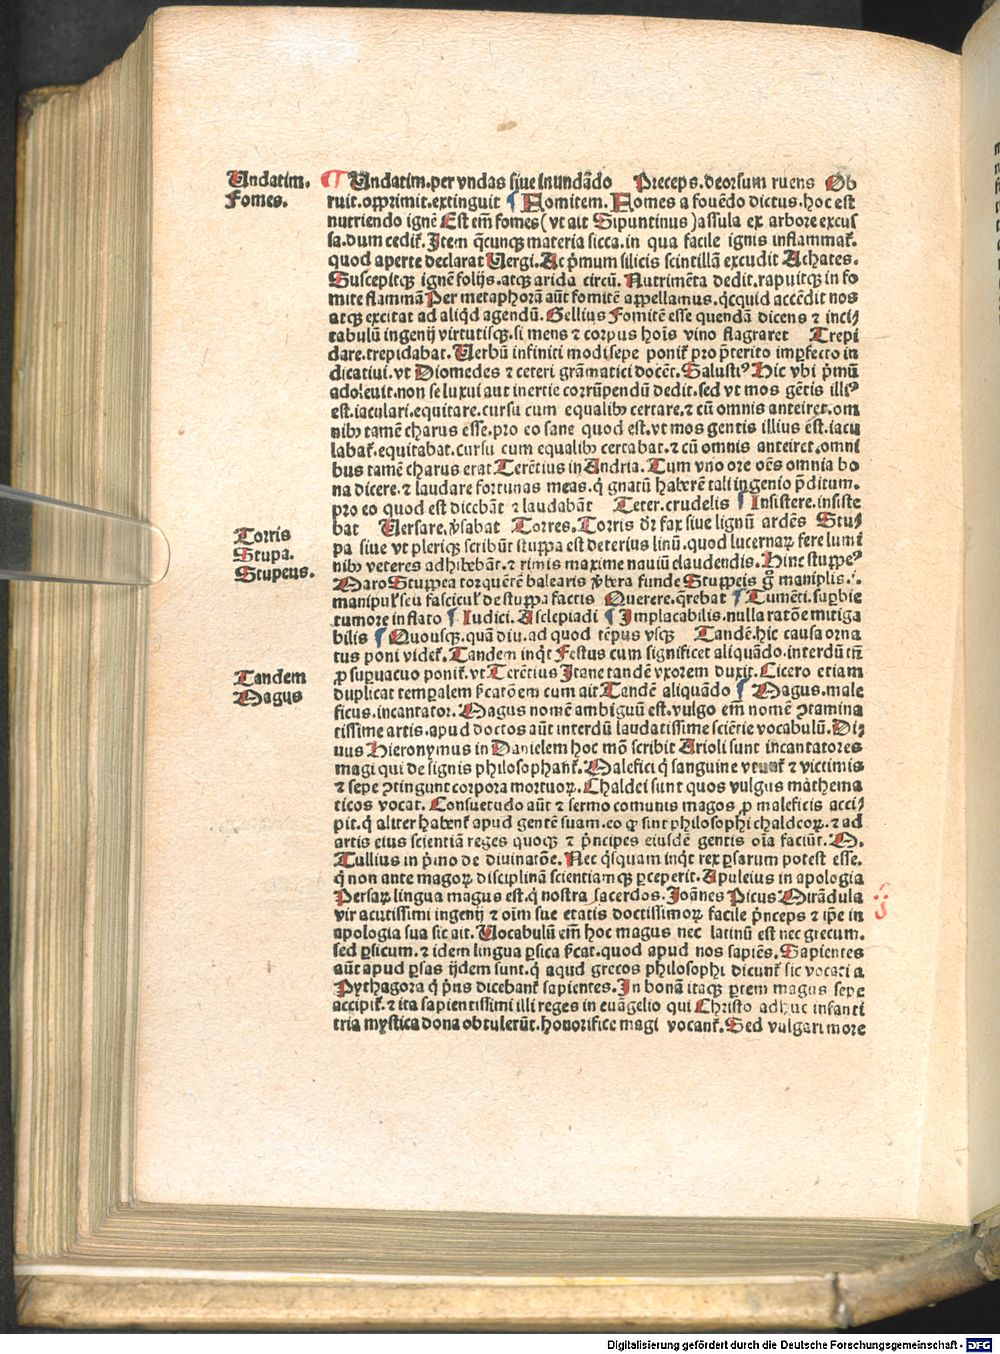 Undatim.
Fomes.
Torris
Stupa.
Stupeus.
Tandem
Magus
¶ Undatim.per vndas siue inundãdo Preceps.deorsum ruens Ob
ruit.opprimit.extinguit ¶ Fomitem. Fomes a fouẽdo dictus.hoc est
nutriendo ignẽ Est em̃ fomes (vt ait Sipuntinus) assula ex arbore excus
sa.dum cedit᷑. Item q̃cunqꝫ materia sicca.in qua facile ignis inflammat᷑.
quod aperte declarat Uergi. Ac p̃mum silicis scintillã excudit Achates.
Suscepitqꝫ ignẽ folijs.atqꝫ arida circũ. Nutrimẽta dedit.rapuitqꝫ in fo
mite flammã Per metaphorã aũt fomitẽ appellamus.q̇cquid accẽdit nos
atqꝫ excitat ad aliq̇d agendũ. Gellius Fomitẽ esse quendã dicens ⁊ inci⸗
tabulũ ingenij virtutisqꝫ.si mens ⁊ corpus hoĩs vino flagraret Trepi
dare.trepidabat. Uerbũ infiniti modi sepe ponit᷑ pro p̃terito imꝑfecto in
dicatiui.vt Diomedes ⁊ ceteri grãmatici docẽt. Salustiꝰ Hic vbi p̃mũ
adoleuit.non se luxui aut inertie corrũpendũ dedit.sed vt mos gẽtis illiꝰ
est.iaculari.equitare.cursu cum equalibꝫ certare.⁊ cũ omnis anteiret.om
nibꝫ tamẽ charus esse.pro eo sane quod est.vt mos gentis illius est.iacu
labat᷑.equitabat.cursu cum equalibꝫ certabat.⁊ cũ omnis anteiret.omni
bus tamẽ charus erat Terẽtius in Andria. Tum vno ore oẽs omnia bo
na dicere.⁊ laudare fortunas meas.q̇ gnatũ haberẽ tali ingenio p̃ditum.
pro eo quod est dicebãt ⁊ laudabãt Teter.crudelis ¶ Insistere.insiste
bat Uersare.v̓sabat Torres. Torris dr̃ fax siue lignũ ardẽs Stu⸗
pa siue vt pleriqꝫ scribũt stuppa est deterius linũ.quod lucernaꝝ fere lumi
nibꝫ veteres adhibebãt.⁊ rimis maxime nauiũ claudendis. Hinc stuppeꝰ
Maro Stuppea torquẽtẽ balearis v̓bera funde Stuppeis g̊ maniplis.
manipul᷑ seu fascicul᷑ de stuppa factis Querere.q̃rebat ¶ Tumẽti.suꝑbie
tumore inflato ¶ Iudici. Asclepiadi ¶ Implacabilis.nulla ratõe mitiga
bilis ¶ Quousqꝫ.quã diu.ad quod tẽpus vsqꝫ Tandẽ.hic causa orna
tus poni videt᷑. Tandem inq̇t Festus cum significet aliquãdo.interdũ tñ
ꝓ suꝑuacuo ponit᷑.vt Terẽtius Itane tandẽ vxorem duxit. Cicero etiam
duplicat temꝑalem ẜcatõem cum ait Tandẽ aliquãdo ¶ Magus.male
ficus.incantator. Magus nomẽ ambiguũ est.vulgo em̃ nomẽ ꝯtamina
tissime artis.apud doctos aũt interdũ laudatissime sciẽtie vocabulũ. Di⸗
uus Hieronymus in Danielem hoc mõ scribit Arioli sunt incantatores
magi qui de signis philosophant᷑. Malefici q̇ sanguine vtunt᷑ ⁊ victimis
⁊ sepe ꝯtingunt corpora mortuoꝝ. Chaldei sunt quos vulgus mathema
ticos vocat. Consuetudo aũt ⁊ sermo comunis magos ꝓ maleficis acci⸗
pit.q̇ aliter habent᷑ apud gentẽ suam.eo ꝙ sint philosophi chaldeoꝝ.⁊ ad
artis eius scientiã reges quoqꝫ ⁊ p̃ncipes eiusdẽ gentis oĩa faciũt. M.
Tullius in p̃mo de diuinatõe. Nec q̇squam inq̇t rex ꝑsarum potest esse.
q̇ non ante magoꝝ disciplinã scientiamqꝫ ꝑceperit. Apuleius in apologia
Persaꝝ lingua magus est.q̇ nostra sacerdos. Joãnes Picus Mirãdula
vir acutissimi ingenij ⁊ oĩm sue etatis doctissimoꝝ facile p̃nceps ⁊ ip̃e in
apologia sua sic ait. Uocabulũ em̃ hoc magus nec latinũ est nec grecum.
sed ꝑsicum.⁊ idem lingua ꝑsica ẜcat.quod apud nos sapiẽs. Sapientes
aũt apud ꝑsas ijdem sunt.q̇ aqud grecos philosophi dicunt᷑ sic vocati a
Pythagora q̇ p̃us dicebant᷑ sapientes. In bonã itaqꝫ ꝑtem magus sepe
accipit᷑.⁊ ita sapientissimi illi reges in euãgelio qui Christo adhuc infanti
tria mystica dona obtulerũt.honorifice magi vocant᷑. Sed vulgari more
Digitalisierung gefördert durch die Deutsche Forschungsgemeinschaft - DFG